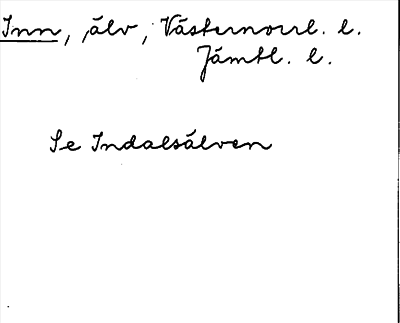 Inn, älv, Västernorrl. l.
Jämtl. l.
Se Indalsälven